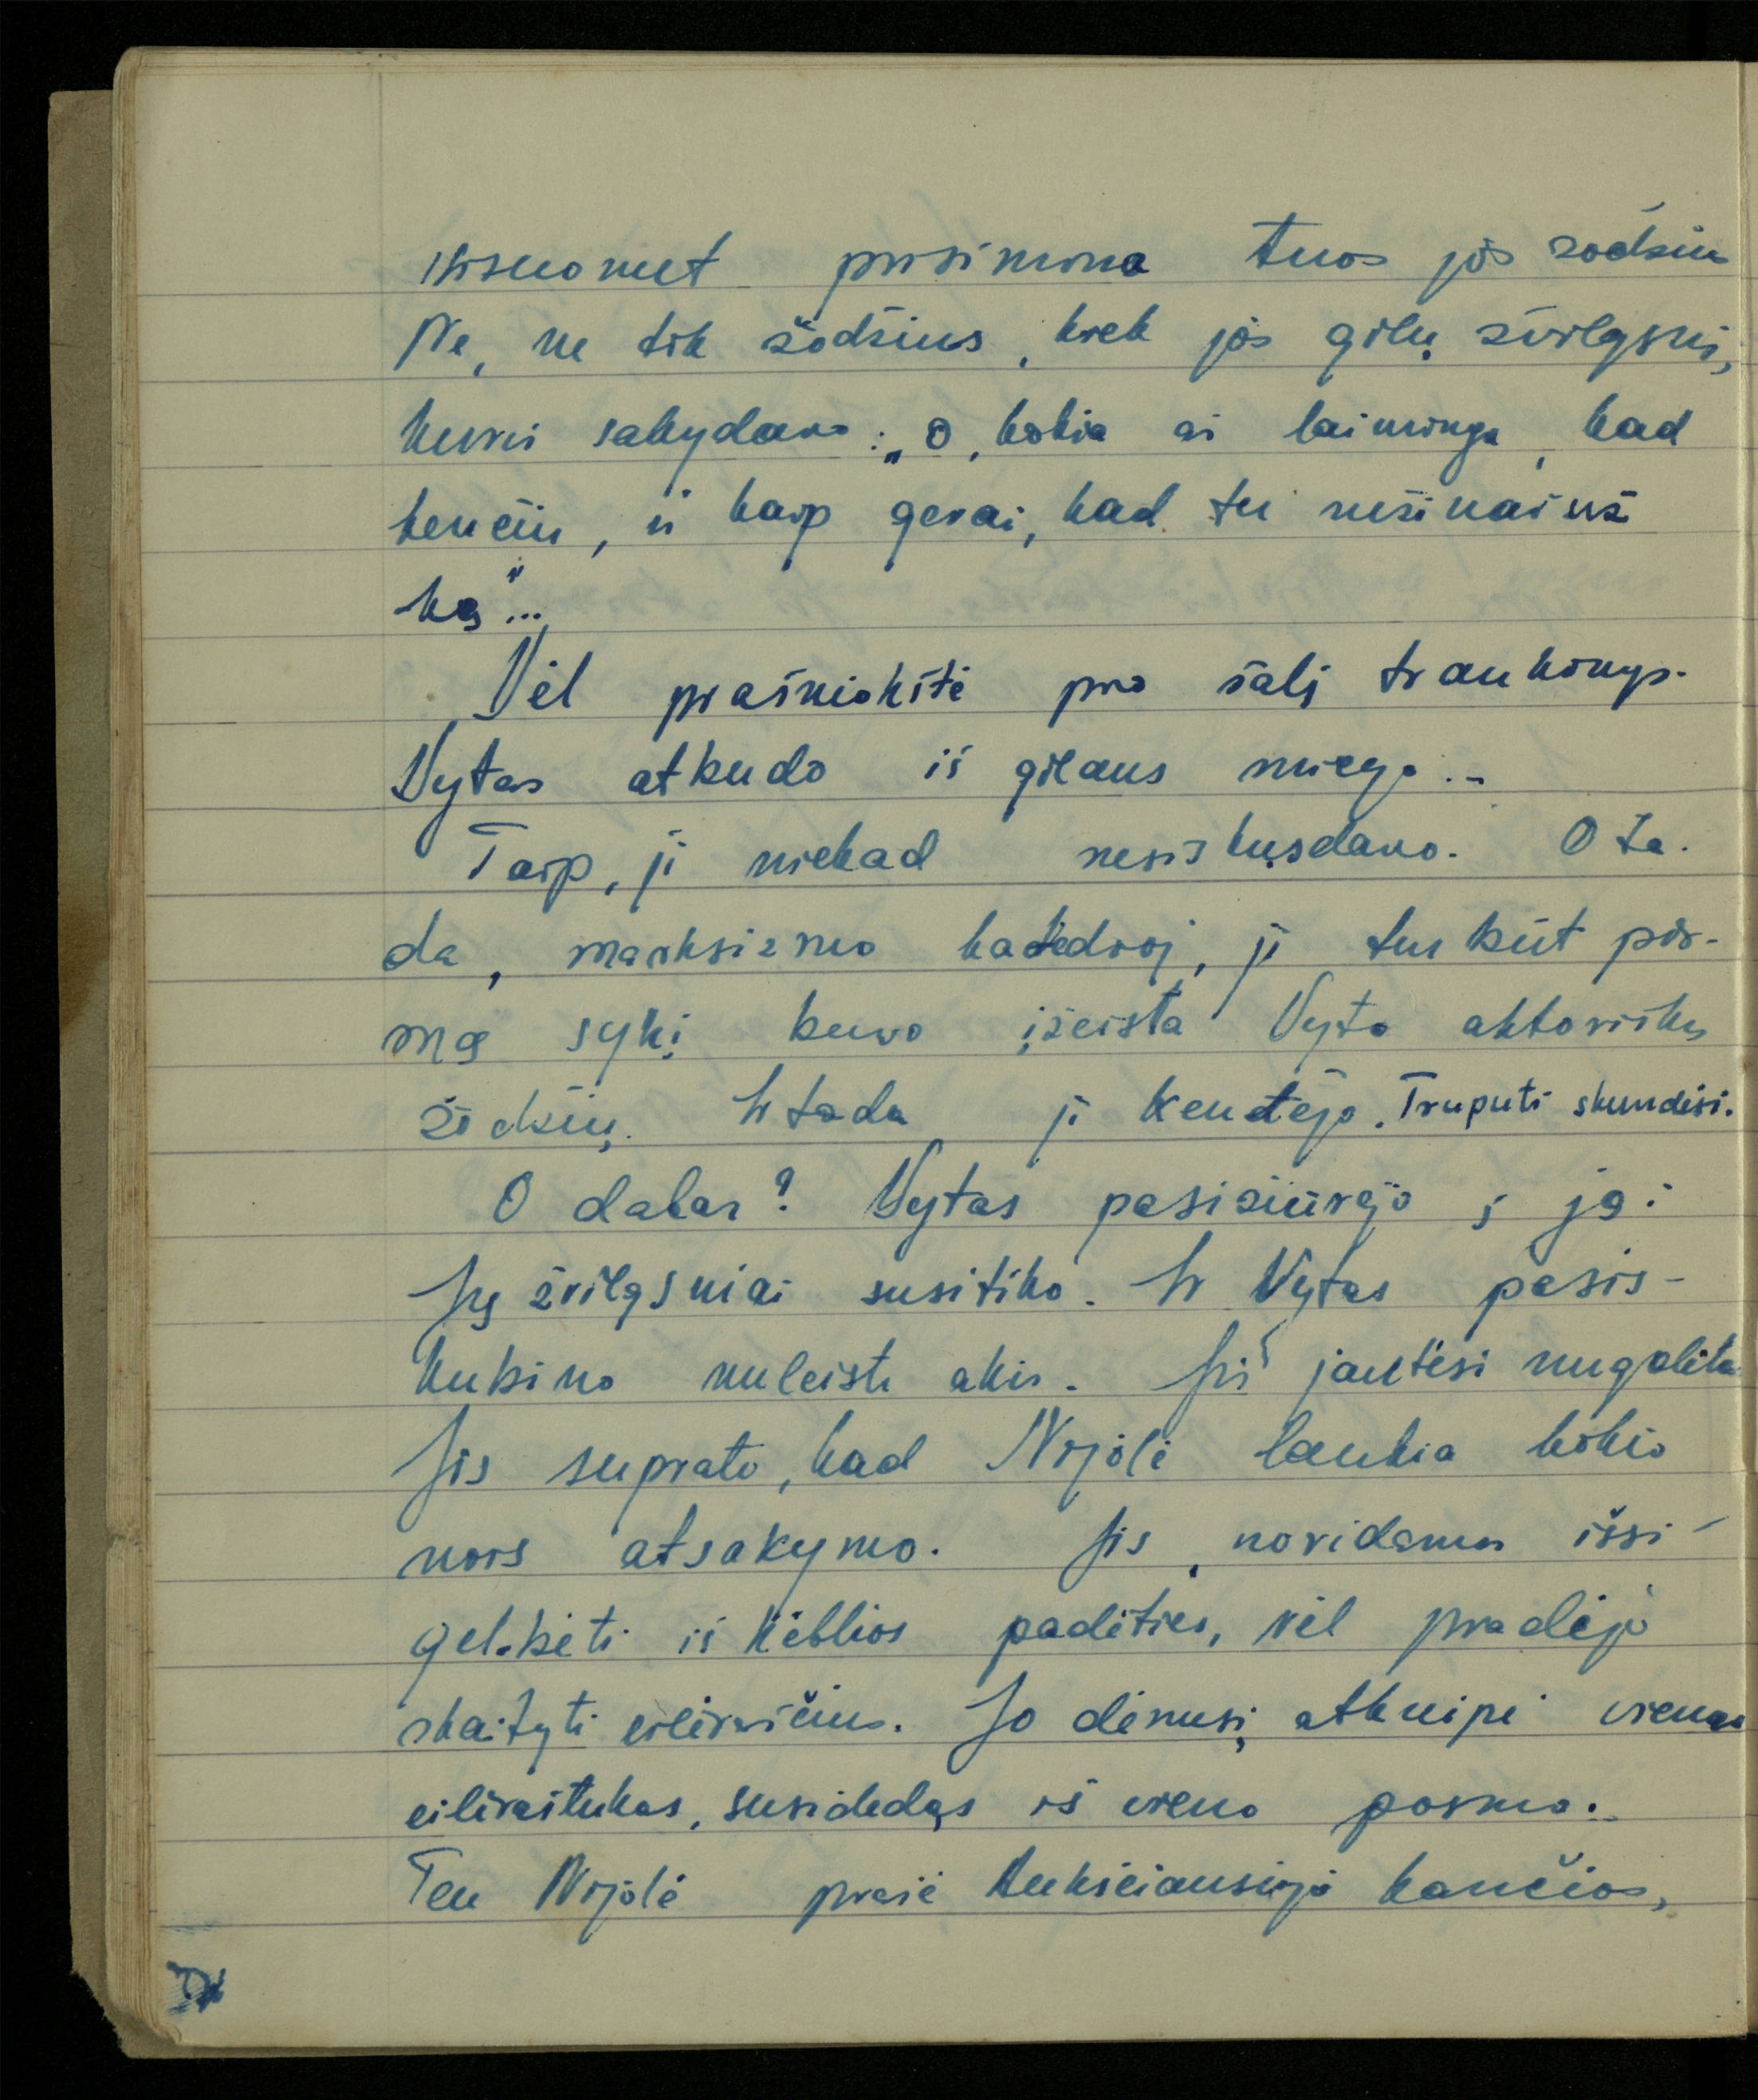 visuomet prisimena tuos jos žodžius
Ne, ne tik žodžius, kiek jos gilų žvilgsnį,
kuris sakydavo: „O, kokia aš laiminga, kad
kenčiu, ir kaip gerai, kad tu nežinai už
ką"...
Vėl prašniokštė pro šalį traukinys.
Vytas atbudo iš gilaus miego...
Taip, ji niekad nesiskųsdavo. O ta-
da, marksizmo katedroj, ji turbūt pir-
mą sykį buvo įžeista Vyto aktoriškų
žodžių. Ir tada ji kentėjo. Truputi skundėsi.
O dabar? Vytas pasižiūrėjo į ją.
Jų žvilgsniai susitiko. Ir Vytas pasis-
kubino nuleisti akis. Jis jautėsi nugalėtas
Jis suprato, kad Nijolė laukia kokio
nors atsakymo. Jis, norėdamas išsi-
gelbėti iš kėblios padėties, vėl pradėjo
skaityti eilėraščius. Jo dėmesį atkreipė vienas
eilėraštukas, susidedąs iš vieno posmo..
Ten Nijolė prašė Aukščiausiojo kančios,